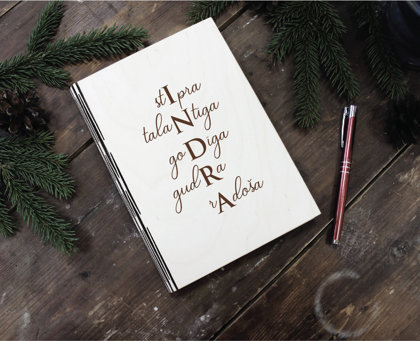 stIpra
talaNtīga
goDīga
gudRa
rAdoša